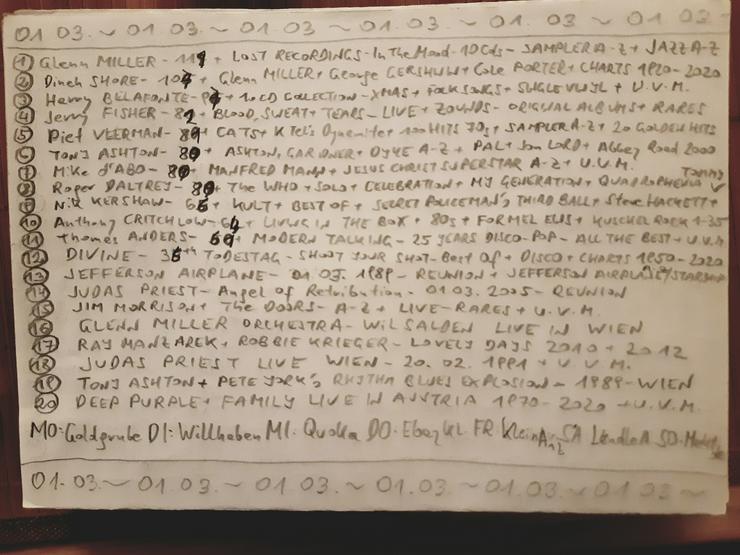 01 03. ~ 01 03. ~ 01 03. ~ 01 03. ~ 01 03. ~ 01 03. ~ 01 03
① Glenn MILLER - + LOST RECORDINGS - In The Mood - 10 Cds - SAMPLER A-Z + JAZZ A-Z
② Dinah SHORE - + Glenn MILLER + George GERSHWIN + Cole PORTER + CHARTS 1920-2020
③ Harry BELAFONTE - + 10 CD COLLECTION - XMAS + FOLKSONGS + SINGLE VINYL + U.V.M.
④ Jerry FISHER - + BLOOD, SWEAT + TEARS - LIVE + ZOUNDS - ORIGINAL ALBUMS + RARES
⑤ Piet VEERMAN - + CATS + K Tel's Dynamite + 100 HITS 70s + SAMPLER A-Z + 20 GOLDEN HITS
⑥ TONY ASHTON - + ASHTON, GARDNER + DYKE A-Z + PAL + Jon LORD + Abbey Road 2000
⑦ Mike d'ABO - + MANFRED MANN + JESUS CHRIST SUPERSTAR A-Z + U.V.M. Tommy
⑧ Roger DALTREY - + The WHO + SOLO + CELEBRATION + MY GENERATION + QUADROPHENIA ✓
⑨ Nik KERSHAW - + KULT + BEST OF + SECRET POLICEMAN'S THIRD BALL + Steve HACKETT +
⑩ Anthony CRITCHLOW - + LIVING IN THE BOX + 80s + FORMEL EINS + KUSCHEL ROCK 1-35
⑪ Thomas ANDERS - + MODERN TALKING - 25 YEARS DISCO-POP - ALL THE BEST + U.V.M
⑫ DIVINE - TODESTAG - SHOOT YOUR SHOT - Best Of + DISCO + CHARTS 1950-2020
⑬ JEFFERSON AIRPLANE - 01 03. 1989 - REUNION + JEFFERSON AIRPLANE/STARSHIP
⑭ JUDAS PRIEST - Angel of Retribution - 01 03. 2005 - REUNION
⑮ JIM MORRISON + The DOORS - A-Z + LIVE - RARES + U.V.M.
⑯ GLENN MILLER ORCHESTRA - WIL SALDEN LIVE IN WIEN
⑰ RAY MANZAREK + ROBBIE KRIEGER - LOVELY DAYS 2010 + 2012
⑱ JUDAS PRIEST LIVE WIEN - 20. 02. 1991 + U.V.M.
⑲ TONY ASHTON + PETE YORK'S RHYTHM BLUES EXPLOSION - 1989 - WIEN
⑳ DEEP PURPLE + FAMILY LIVE IN AUSTRIA 1970-2020 + U.V.M.
MO: Goldgrube DI: Willhaben MI. Quoka DO. Ebay KL FR. KleinAnz SA LändleA SO-
01. 03. ~ 01 03. ~ 01 03. ~ 01 03. ~ 01. 03. ~ 01 03. ~